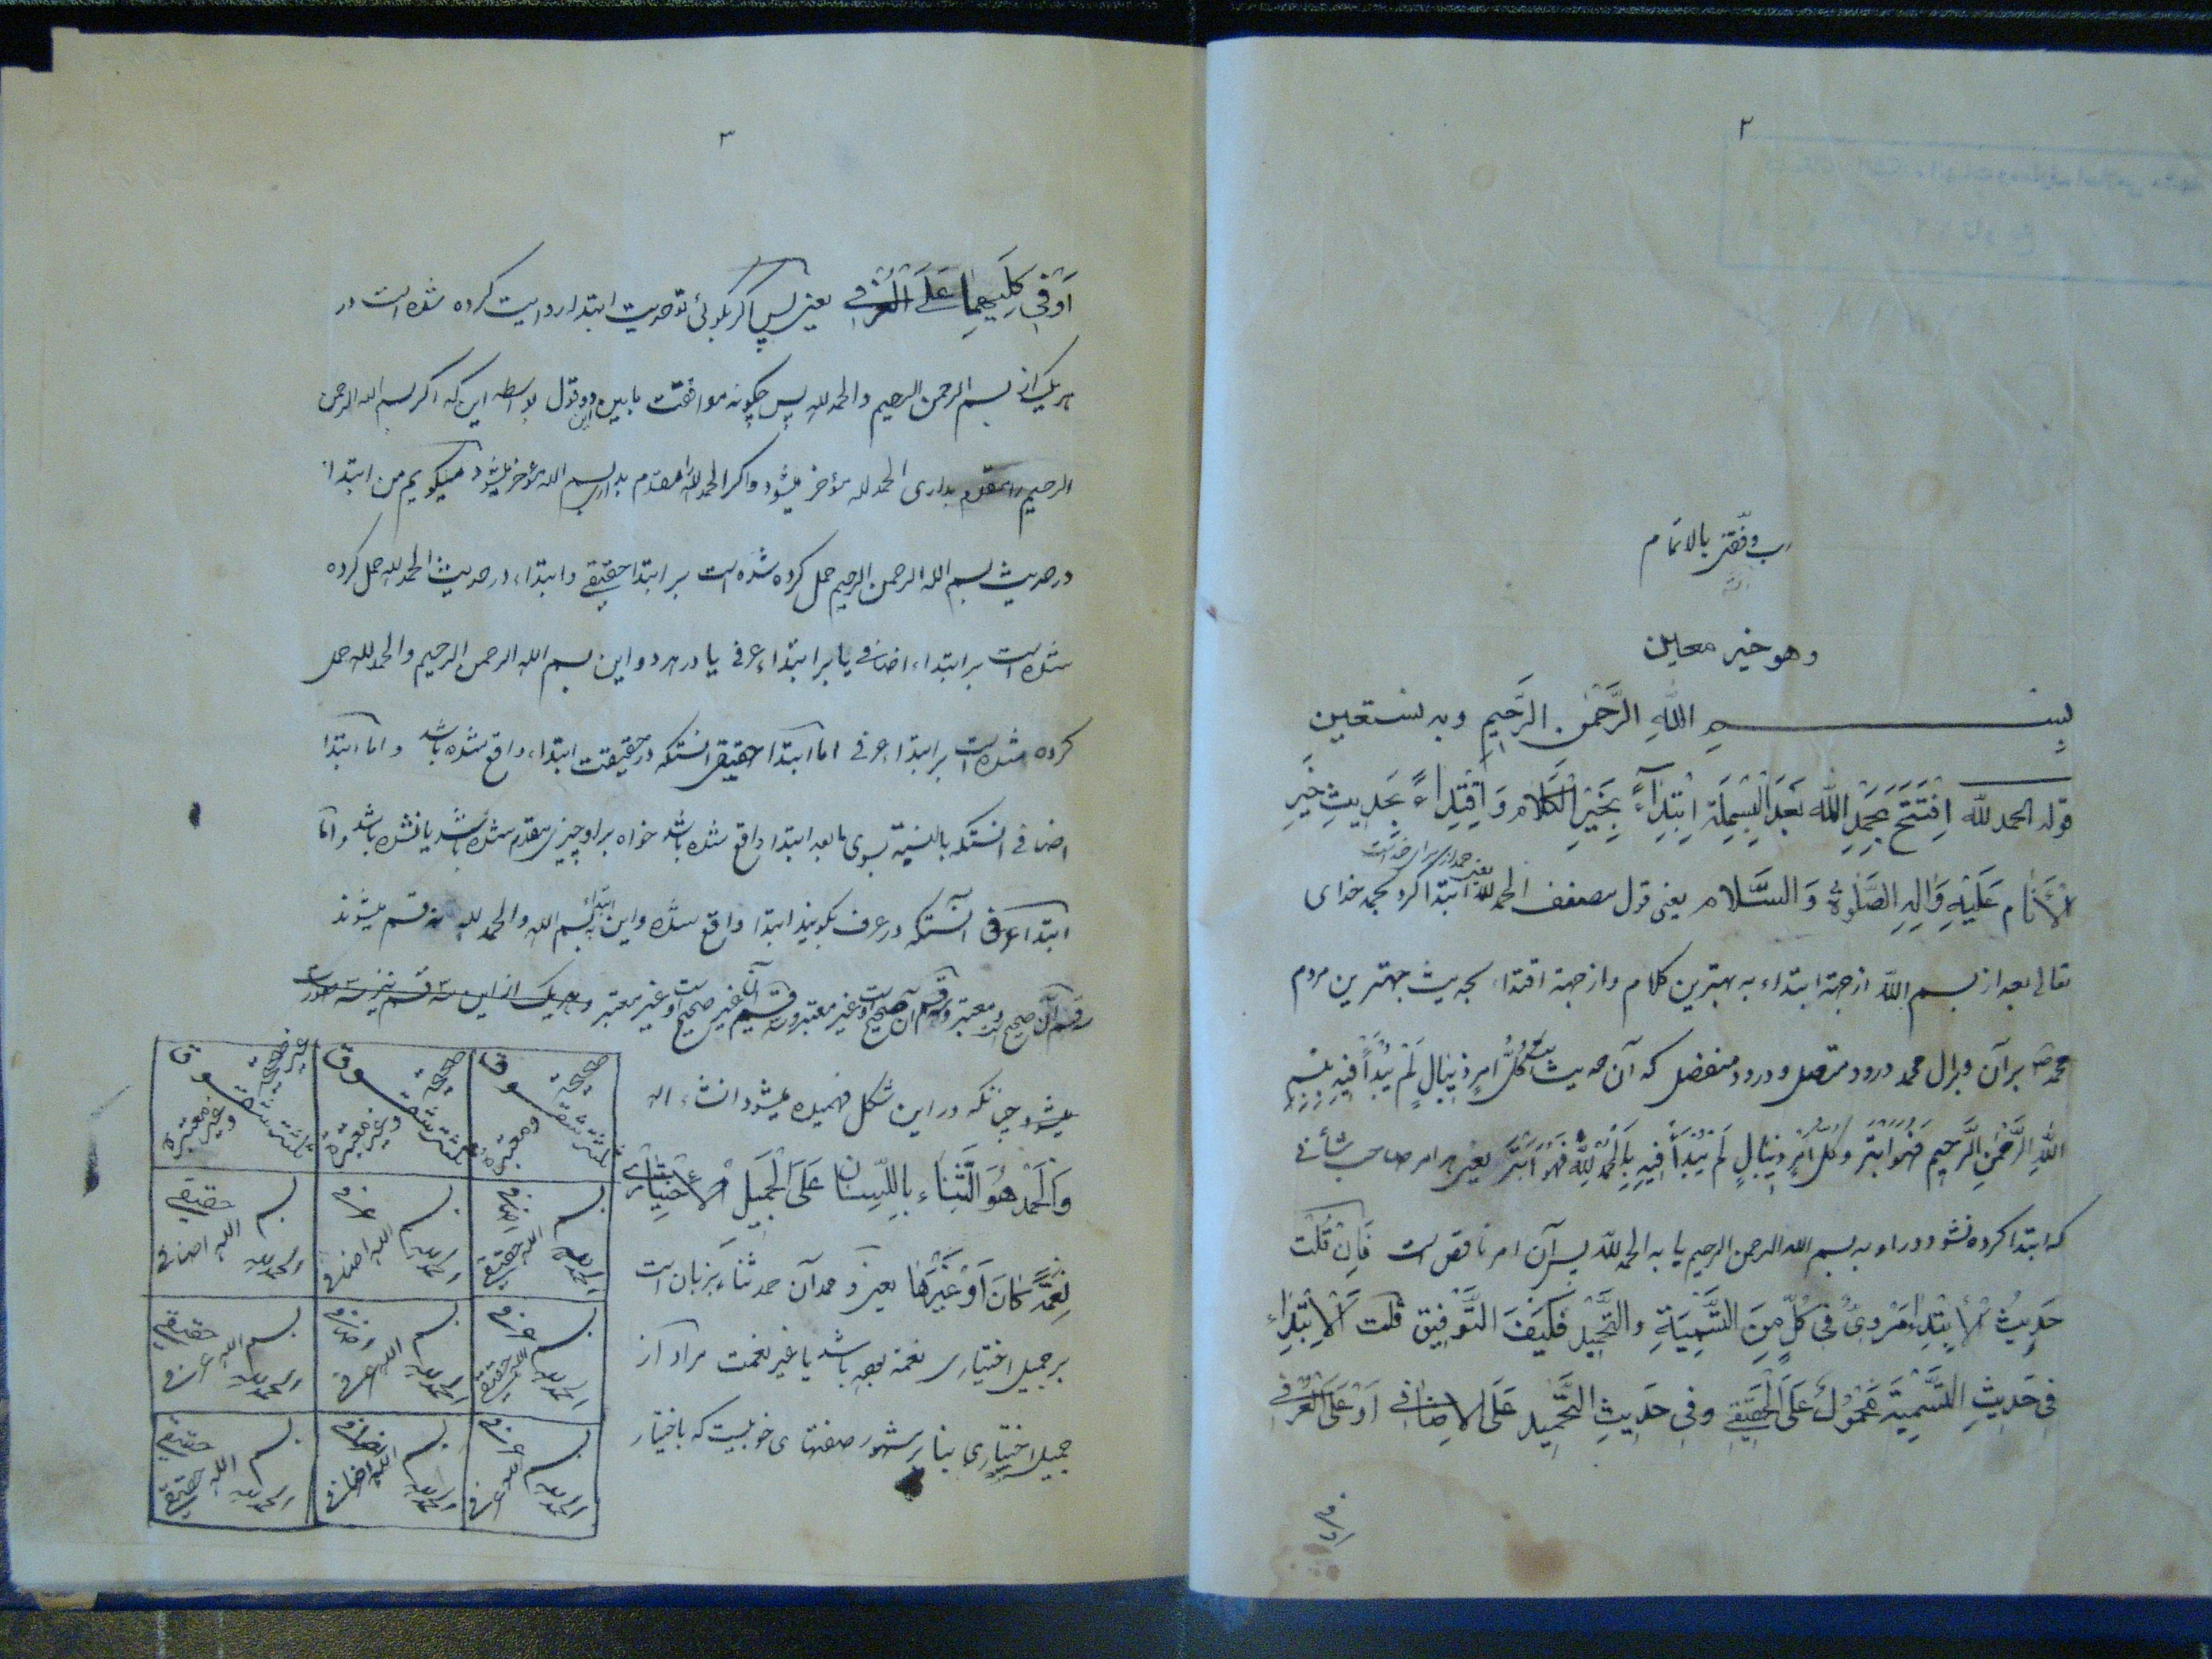 ۲
رب وفقنی بالاتمام
وهو خیر معین
بِسْمِ اللهِ الرَّحْمٰنِ الرَّحِيمِ وبه نستعین
قوله الحمد لله اِفْتَتَحَ بِحَمْدِ اللهِ بَعْدَ الْبِسْمِلَةِ اِبْتِدٰآءً بِخَيْرِ الْكَلَامِ وَاقْتِدٰاءً بِحَدِيثِ خَيْرِ
الْأَنٰامِ عَلَيْهِ وَآلِهِ الصَّلٰوةُ وَالسَّلام یعنی قول مصنف الحمد لله ابتدا کرد بحمد خدای
تعالی بعد از بسم الله از جهة ابتداء به بهترین کلام و از جهة اقتداء بحدیث بهترین مردم
محمد ص بر آن و بر ال محمد درود متصل و درود منفصل که آن حدیث كُلُّ اَمْرٍ ذِيبٰالٍ لَمْ يُبْدَأْ فِيهِ بِبِسْمِ
اللهِ الرَّحْمٰنِ الرَّحِيمِ فَهُوَ اَبْتَرُ وَ كُلُّ اَمْرٍ ذِيبٰالٍ لَمْ يُبْدَأْ فِيهِ بِالْحَمْدُ لِلّٰهِ فَهُوَ اَبْتَرُ یعنی هر امر صاحب شأنی
که ابتدا کرده نشود در او به بسم الله الرحمن الرحیم یا به الحمد لله پس آن امر ناقص است فَاِنْ قُلْتَ
حَدِيثُ الْاِبْتِدٰاءِ مَرْوِىٌّ فِى كُلٍّ مِنَ التَّسْمِيَةِ وَالتَّحْمِيدِ فَكَيْفَ التَّوْفِيق قُلْتُ اَلْاِبْتِدٰاءُ
فِى حَدِيثِ التَّسْمِيَةِ مَحْمُولٌ عَلَى الْحَقِيقِى وَفِى حَدِيثِ التَّحْمِيدِ عَلَى الاِضٰافِى اَوْ عَلَى الْعُرْفِى
۳
اَوْ فِى كِلَيْهِمٰا عَلَى الْعُرْفِى یعنی پس اگر بگوئی تو حدیث ابتدا روایت کرده شده است در
هر یک از بسم الرحمن الرحیم والحمد لله پس چگونه موافقت مابین این دو قول بواسطه این که اگر بسم الله الرحمن
الرحیم را مقدم بداری الحمد لله مؤخر میشود و اگر الحمد لله را مقدم بداری بسم الله مؤخر میشود میگویم من ابتدا
در حدیث بسم الله الرحمن الرحیم حمل کرده شده است بر ابتدا حقیقی و ابتداء در حدیث الحمد لله حمل کرده
شده است بر ابتداء اضافی یا بر ابتداء عرفی یا در هر دو این بسم الله الرحمن الرحیم والحمد لله حمل
کرده شده است بر ابتدا عرفی اما ابتدا حقیقی انستکه در حقیقت ابتداء واقع شده باشد و اما ابتدا
اضافی انستکه بالنسبة بسوی مابعد ابتدا واقع شده باشد خواه بر او چیزی مقدم شده باشد یا نشده باشد و اما
ابتدا عرفی آنستکه در عرف بگویند ابتدا واقع شده و این ابتداء بسم الله والحمد لله نه قسم میشوند
سه قسم آن صحیح است و معتبر و سه قسم آن صحیح است و غیر معتبر و سه قسم آن غیر صحیح است و غیر معتبر و هر یک از این سه قسم نیز سه صورت
میشود چنانکه در این شکل فهمیده میشود انشاء الله
وَالْحَمْدُ هُوَ الثَّنٰاءِ بِاللِّسٰانِ عَلَى الْجَمِيلِ الْاخْتِيٰارِى
نِعْمَةً كٰانَ اَوْ غَيْرَهٰا یعنی و حمد آن حمد ثناء بزبان است
بر جمیل اختیاری نعمة بوده باشد یا غیر نعمت مراد از
جمیل اختیاری بنا بر مشهور صفتهای خوبیست که باختیار
ثلثة شقوق صحیحة ومعتبرة
ثلثة شقوق صحیحة وغیر معتبرة
ثلثة شقوق غیر صحیحة وغیر معتبرة
بسم الله اضافی الحمد لله حقیقی
بسم الله عرفی الحمد لله اضافی
بسم الله حقیقی الحمد لله اضافی
بسم الله عرفی الحمد لله حقیقی
بسم الله اضافی الحمد لله عرفی
بسم الله حقیقی الحمد لله عرفی
بسم الله عرفی الحمد لله عرفی
بسم الله اضافی الحمد لله اضافی
بسم الله حقیقی الحمد لله حقیقی